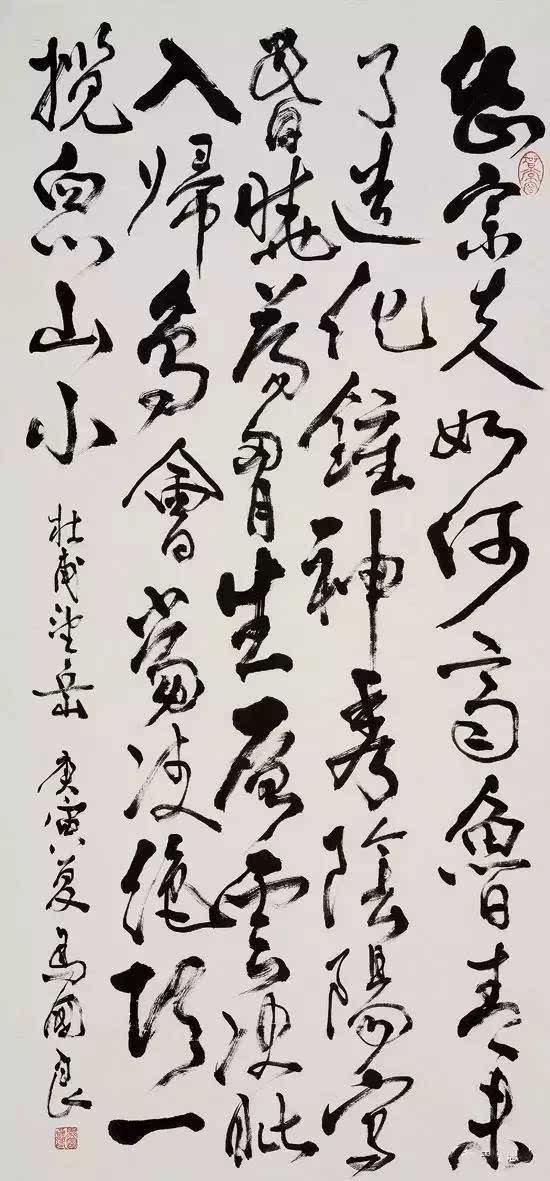 岱宗夫如何齊魯青未
了造化鍾神秀陰陽割
昏曉蕩胷生層雲決眦
入歸鳥會當凌絕頂一
攬衆山小
杜甫望岳 庚寅夏馬國良